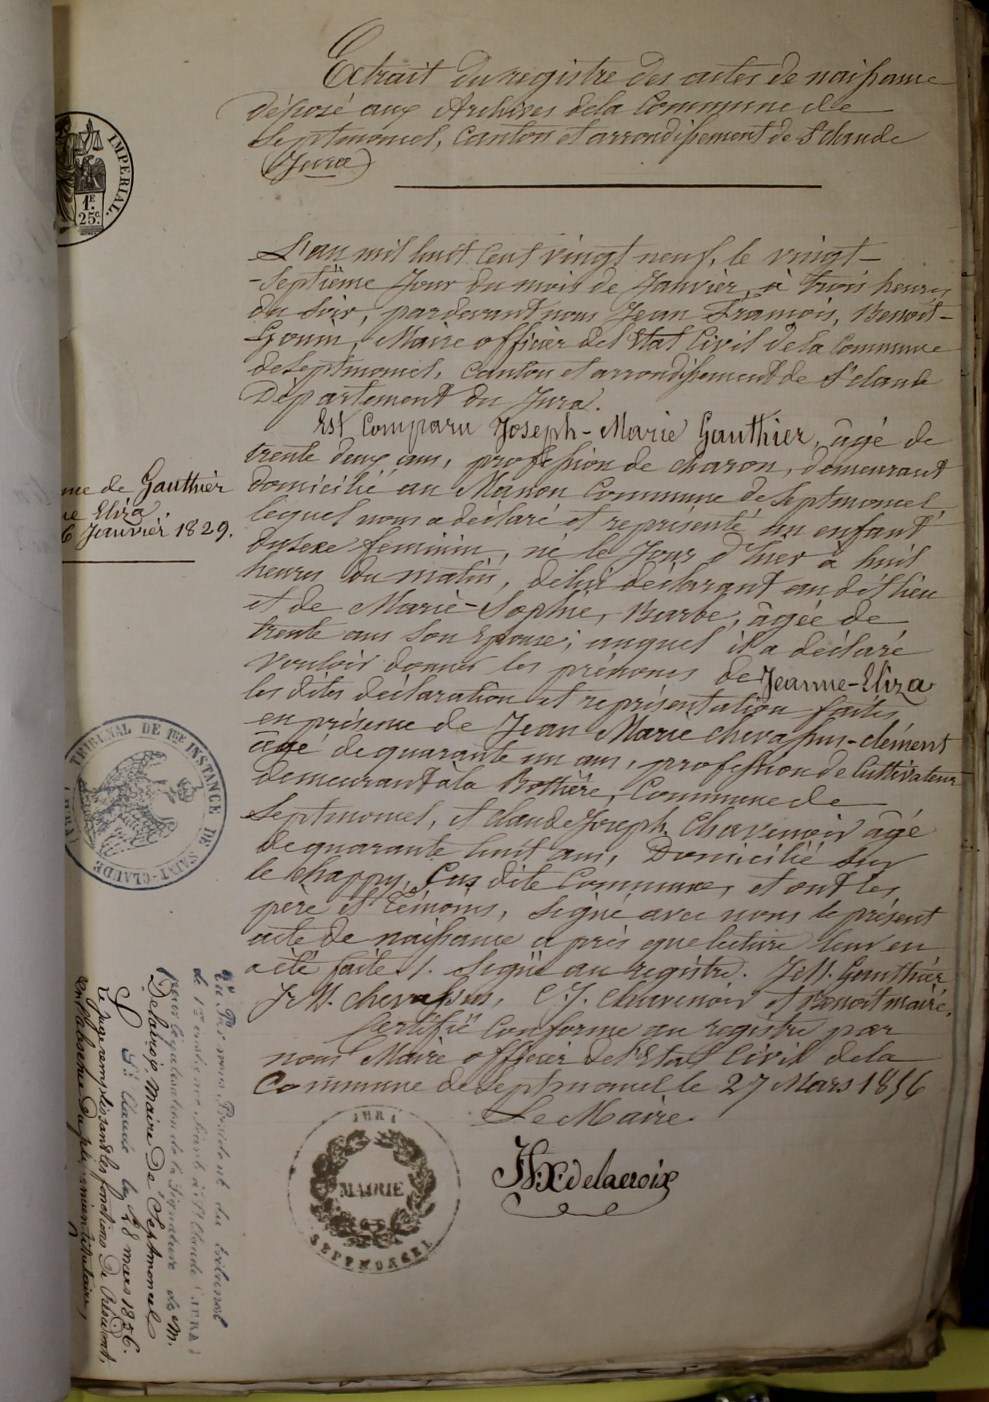 Extrait du registre des actes de naissance
déposé aux Archives de la Commune de
Septmoncel, Canton et arrondissement de St claude
(Jura)
IMPERIAL.
1F.
25c.
L'an mil huit cent vingt neuf, le vingt-
-septième Jour du mois de Janvier, à trois heures
du soir, pardevant nous Jean François, Benoit-
Gouin, Maire officier de l'Etat Civil de la Commune
de Septmoncel, canton et arrondissement de St claude
Département du Jura.
Est Comparu Joseph-Marie Gauthier, âgé de
trente deux ans, profession de charon, demeurant
domicilié au Manon Commune de Septmoncel,
lequel nous a déclaré et représenté un enfant
du sexe feminin, né le Jour d'hier à huit
heures du matin, de lui déclarant au dit lieu
et de Marie-Sophie, Barbe, âgée de
trente ans son Epouse; auquel il a déclaré
vouloir donner les prénoms de Jeanne-Eliza
les dites déclaration et représentation faites
en présence de Jean Marie chevassus-clément
âgé de quarante un ans, profession de Cultivateur
demeurant à la Bottière, Commune de
Septmoncel, et claude Joseph Chavenoir âgé
de quarante huit ans, Domicilié sur
le chappy, Sus dite Commune, et ont les
père et Témoins, signé avec nous le présent
acte de naissance après que lecture leur en
a été faite /. Signé au registre. J.M. Gauthier
J.M. chevassus, C.J. Chavenoir et Benoit maire.
Certifié Conforme au registre par
nous Maire officier de l'Etat Civil de la
Commune de Septmoncel le 27 Mars 1856
Le Maire.
de Gauthier
Eliza.
Janvier 1829.
TRIBUNAL DE 1RE INSTANCE DE SAINT-CLAUDE (JURA)
JURA
MAIRIE
SEPTMONCEL
Vu Par nous Président du tribunal
de 1re instance séant à St Claude (JURA)
pour légalisation de la Signature de M.
Delacroix Maire De Septmoncel
St Claude le 28 mars 1856.
Le Juge remplissant les fonctions De Président,